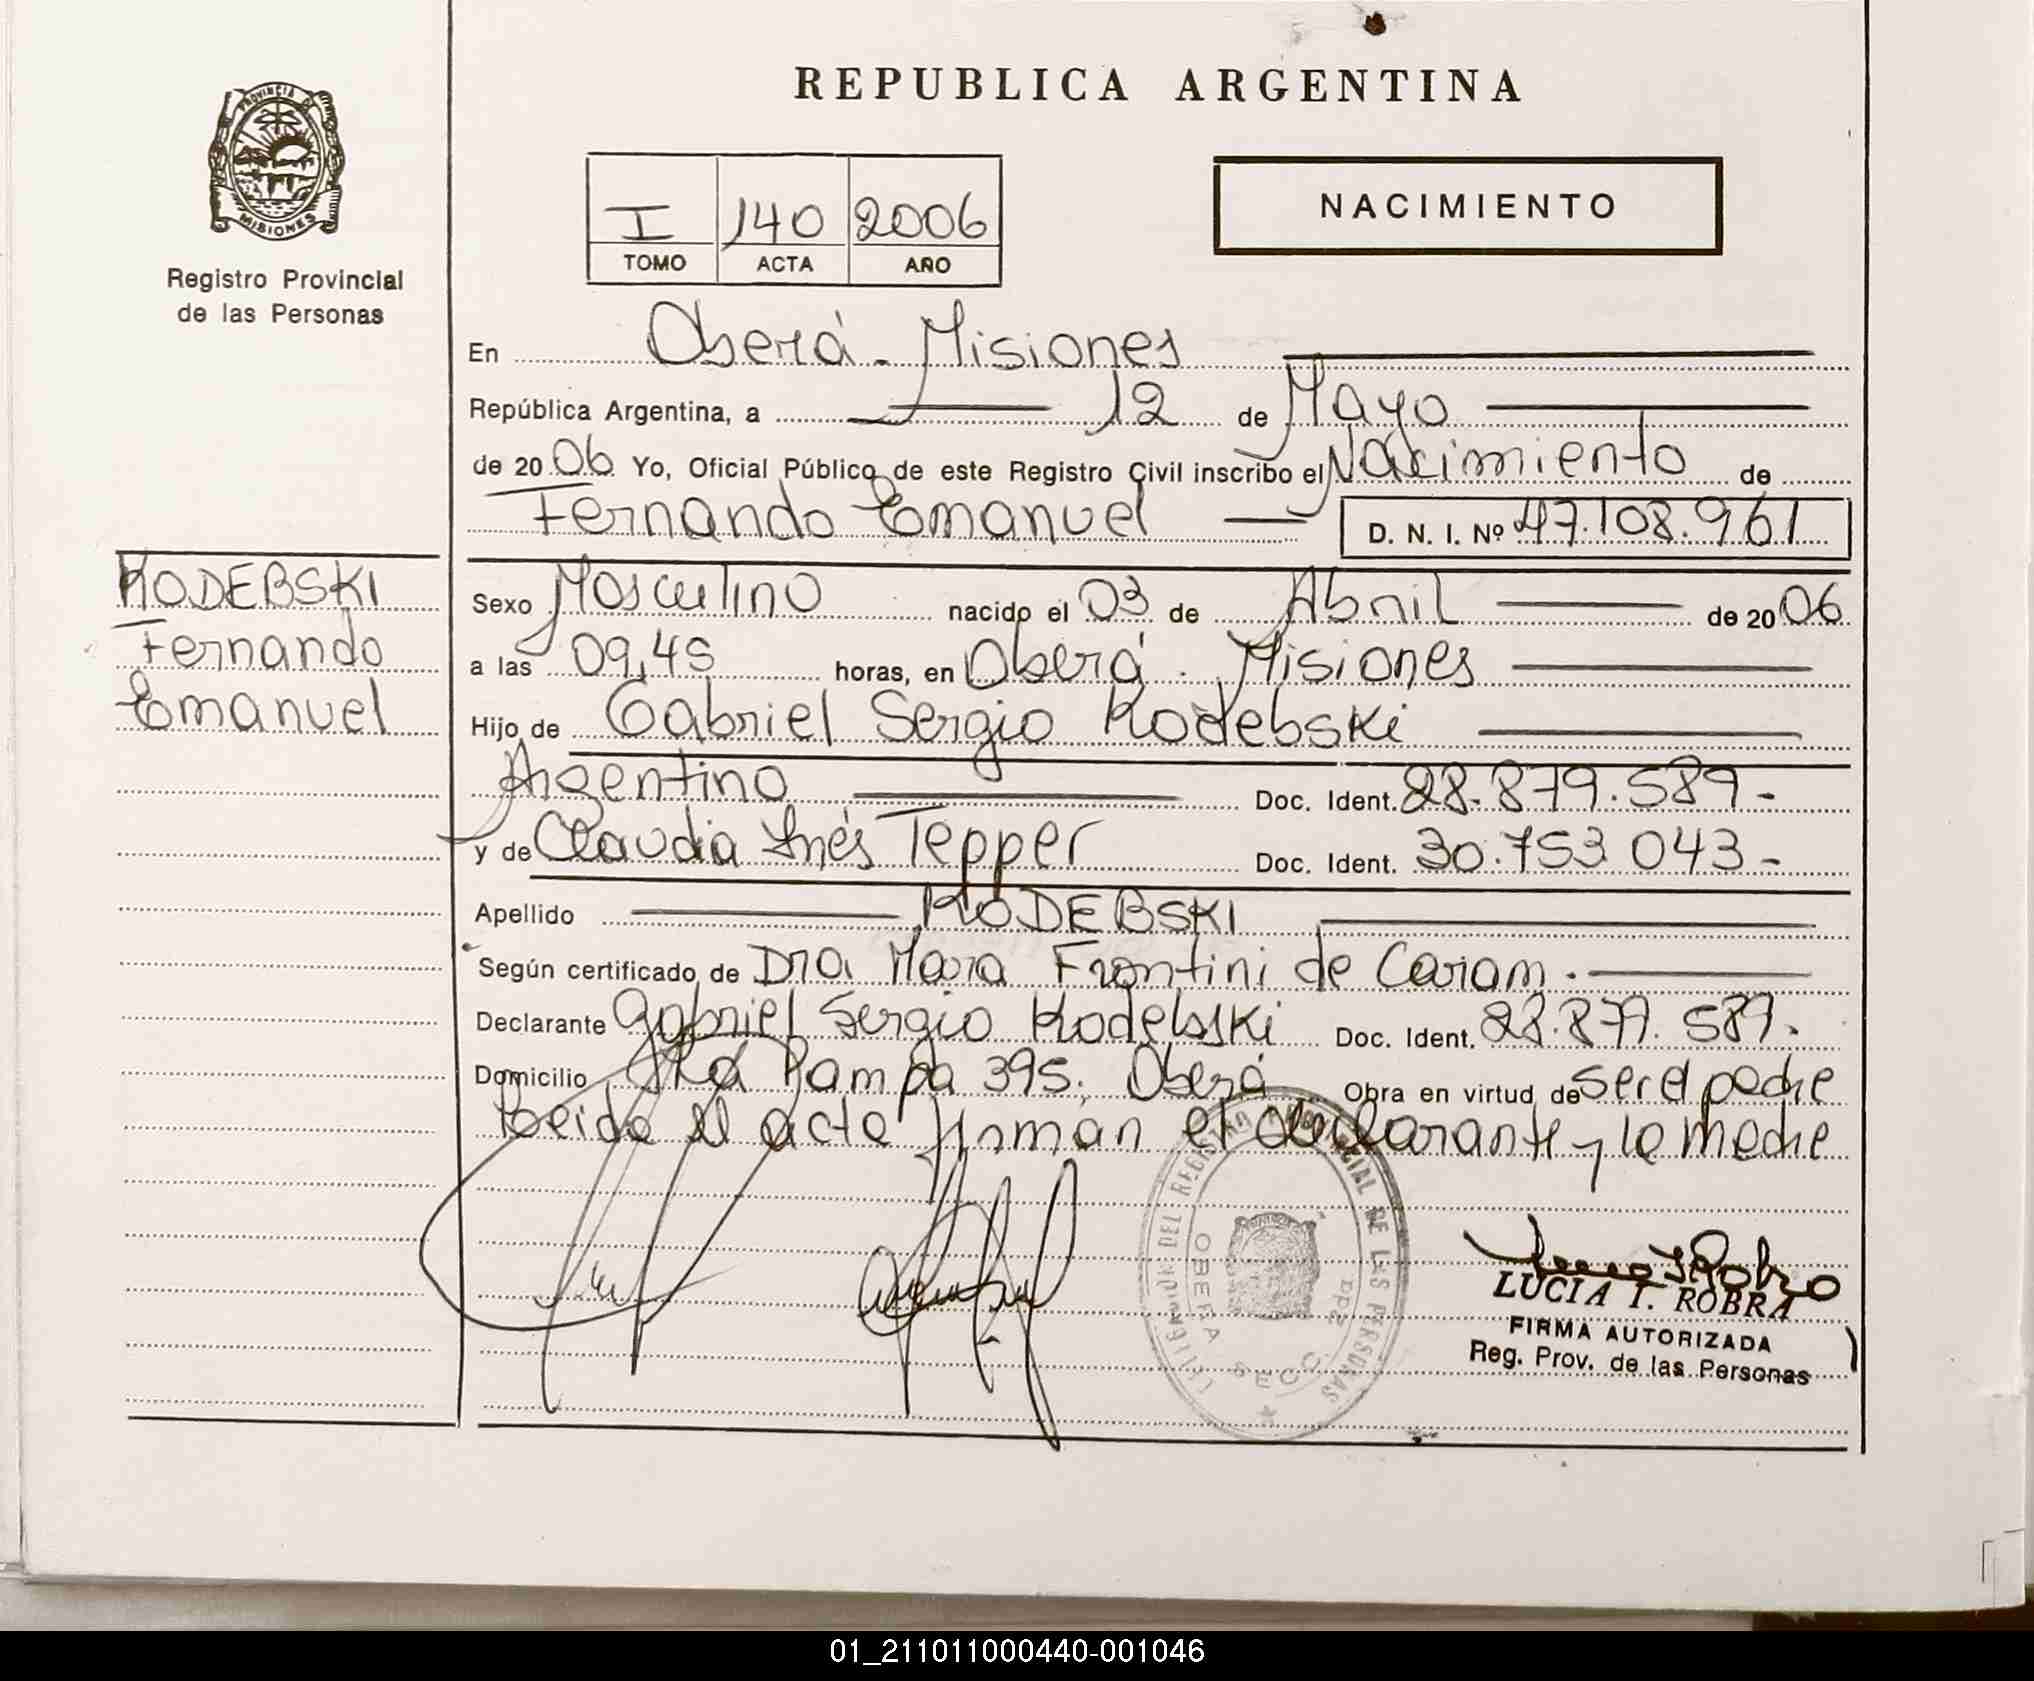 REPUBLICA ARGENTINA
PROVINCIA DE
MISIONES
Registro Provincial
de las Personas
I 140 2006
TOMO ACTA AÑO
NACIMIENTO
En Oberá - Misiones
República Argentina, a 12 de Mayo
de 2006 Yo, Oficial Público de este Registro Civil inscribo el Nacimiento de
Fernando Emanuel D. N. I. Nº 47.108.961
KODEBSKI
Fernando
Emanuel
Sexo Masculino nacido el 03 de Abril de 2006
a las 09,45 horas, en Oberá - Misiones
Hijo de Gabriel Sergio Kodebski
Argentino Doc. Ident. 28.879.589-
y de Claudia Inés Tepper Doc. Ident. 30.753.043-
Apellido KODEBSKI
Según certificado de Dra. Mara Frontini de Caram.
Declarante Gabriel Sergio Kodebski Doc. Ident. 28.879.589.
Domicilio La Pampa 395. Oberá Obra en virtud de ser el padre
Leida el acta firman el declarante y la madre
DEL REGISTRO PROVINCIAL DE LAS PERSONAS
OBERA SECC.
LUCIA I. ROBRA
FIRMA AUTORIZADA
Reg. Prov. de las Personas
01_211011000440-001046